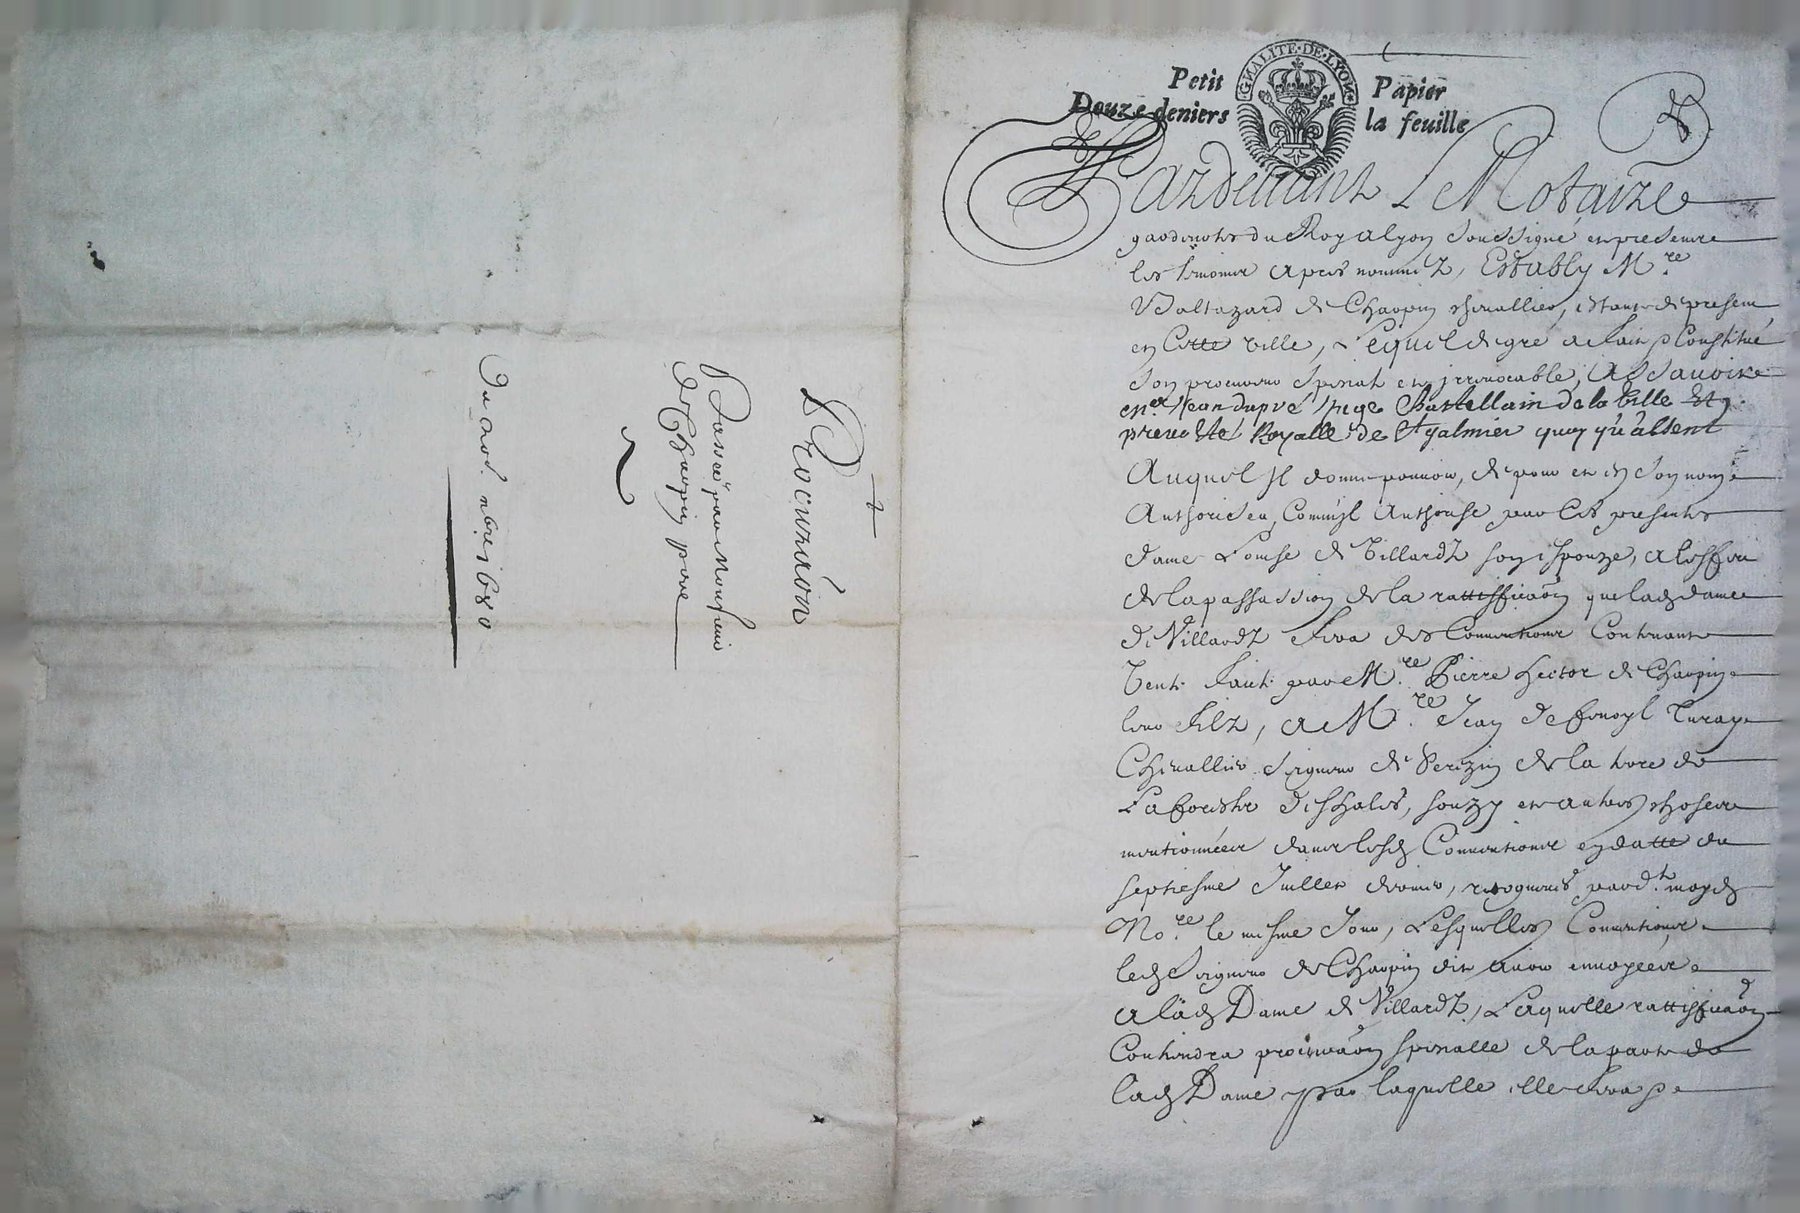 Procura͠on
Passée par Monsieur
de Charpin pere
Du 9bre 1680
GNALITE·DE·LYON
Petit Papier
Douze deniers la feuille
Pardevant Le Notaire
gardenotes du Roy a Lyon soussigné et en presence
les tesmoins apres nommez, Estably M.re
Baltazard de Charpin chevallier, estant de present
en Cette ville, Lequel de gré a fait & Constitué
son procureur special et irrevocable, Assavoir
Jean dupré juge Chastellain de la ville Et
prevosté Royalle de St galmier quoy qu'absent
Auquel Il donne pouvoir, de pour et en son nom
Authoriser Comme Il Authorise par Ces presentes
dame Louise de Villardz son espouze, a l'effect
de la passassion de la rattiffica͠on que lad. dame
de Villardz fera des Conventions Contenant
Vente faite par M.re Pierre hector de Charpin
leur filz, a M.re Jean deffenoyl turey
Chevallier seigneur de Serezin de la terre de
La forestz deshales, souzy et autres choses
mentionnées dans lesd. Conventions en datte du
septiesme Juillet dernier, recogneues pard.t moyd.
No.re le mesme Jour, Lesquelles Conventions
led. seigneur de Charpin dit avoir envoyées
a lad. Dame de Villardz, Laquelle rattiffica͠on
Contiendra procura͠on specialle de la part de
lad. Dame par laquelle elle fera